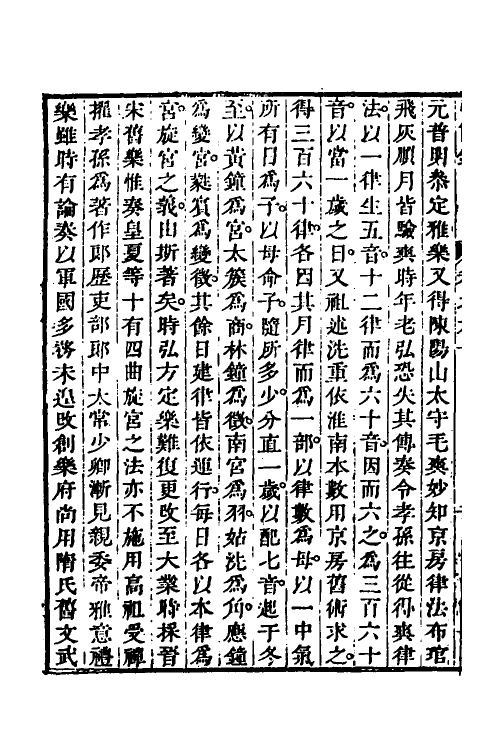 元普明參定雅樂又得陳陽山太守毛爽妙知京房律法布琯
飛灰順月皆驗爽時年老弘恐失其傳奏令孝孫往從得爽律
法以一律生五音十二律而爲六十音因而六之爲三百六十
音以當一歲之日又祖述沈重依淮南本數用京房舊術求之
得三百六十律各因其月律而爲一部以律數爲母以一中氣
所有日爲子以母命子隨所多少分直一歲以配七音起于冬
至以黃鐘爲宮太簇爲商林鐘爲徵南宮爲羽姑洗爲角應鐘
爲變宮蕤賓爲變徵其餘日建律皆依運行每日各以本律爲
宮旋宮之義由斯著矣時弘方定樂難復更改至大業時採晉
宋舊樂惟奏皇夏等十有四曲旋宮之法亦不施用高祖受禪
擢孝孫爲著作郎歷吏部郎中太常少卿漸見親委帝雅意禮
樂雖時有論奏以軍國多務未遑改創樂府尚用隋氏舊文武